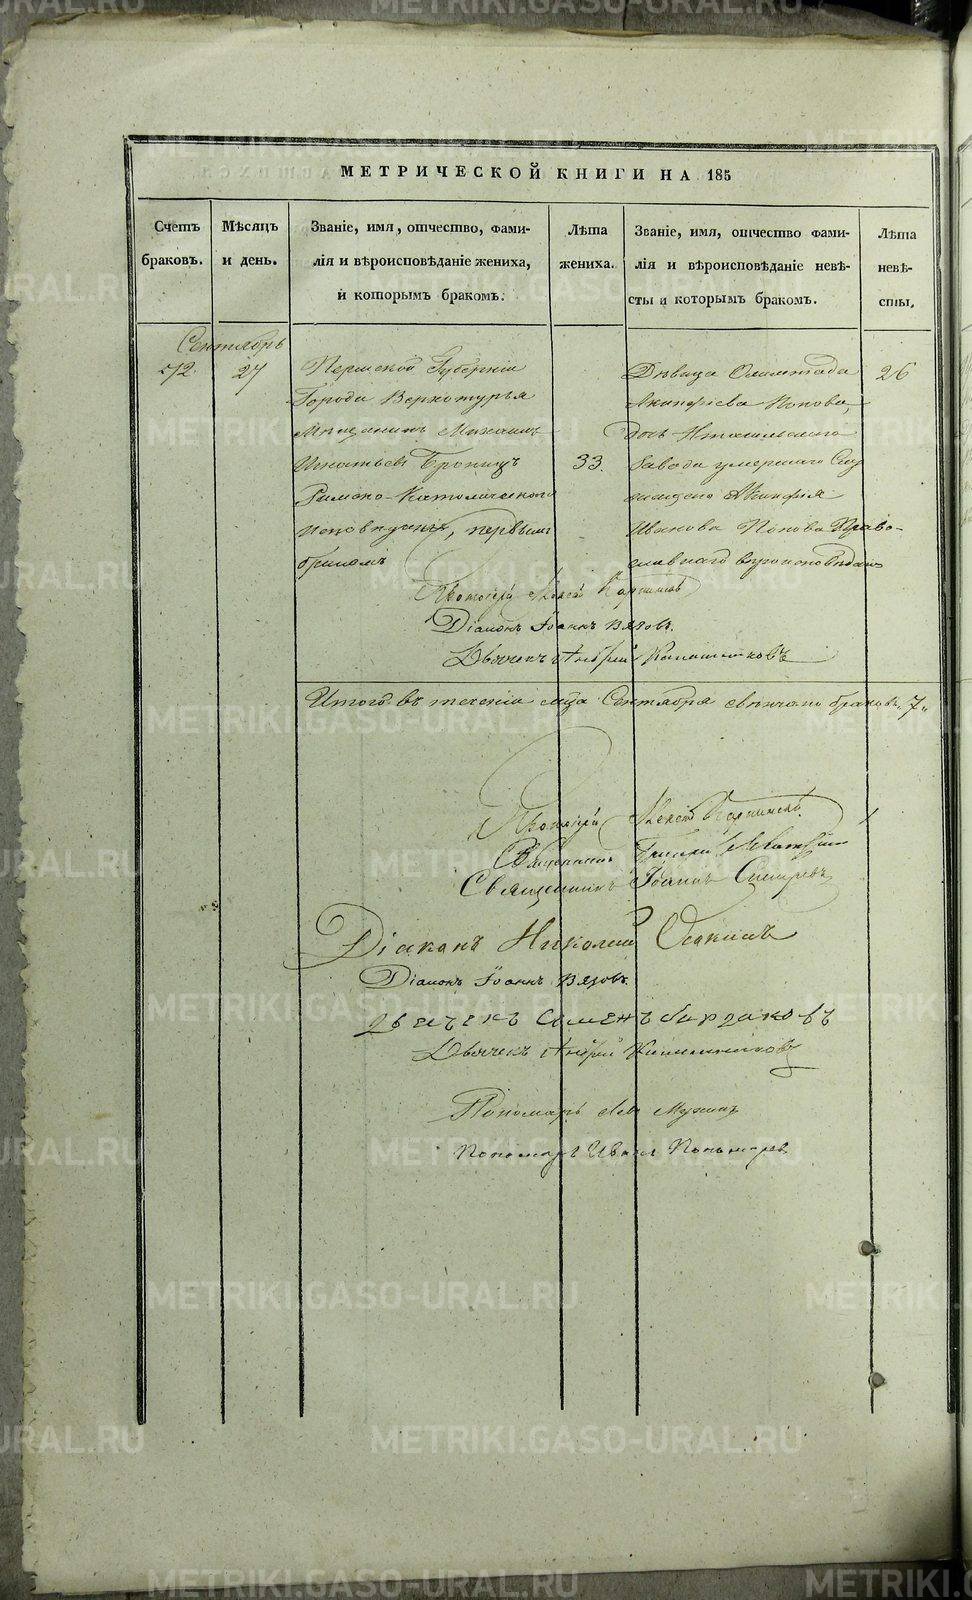 МЕТРИЧЕСКОЙ КНИГИ НА 185
Счетъ браковъ.
Мѣсяцъ и день.
Званіе, имя, отчество, фами-
лія и вѣроисповѣданіе жениха,
и которымъ бракомъ.
Лѣта
жениха.
Званіе, имя, отчество фами-
лія и вѣроисповѣданіе невѣ-
сты и которымъ бракомъ.
Лѣта
невѣ-
сты.
Сентябрь
72.
27
Пермской Губерніи
Города Верхотурья
Мѣщанинъ Михаилъ
Игнатьевъ
Римско-Католическаго
исповѣданія, первымъ
бракомъ
33.
Дѣвица Олимпіада
Акинфіева Попова,
дочь Н-тагильскаго
Завода умершаго
Акинфія
Иванова Попова Право-
славнаго вѣроисповѣданія
26
Протоіерей Алексѣй Карпинскій
Діаконъ Іоаннъ Вязовъ.
Дьячекъ Андрей
Итого въ теченіи мѣсца Сентября свѣнчано браковъ „7„
Протоіерей Алексѣй Карпинскій
Священникъ
Священникъ Іоаннъ
Діаконъ Николай Осокинъ
Діаконъ Іоаннъ Вязовъ.
Дьячекъ Семенъ Бурдаковъ
Дьячекъ Андрей
Пономарь Левъ Мухинъ
Пономарь Иванъ Пономаревъ
METRIKI.GASO-URAL.RU